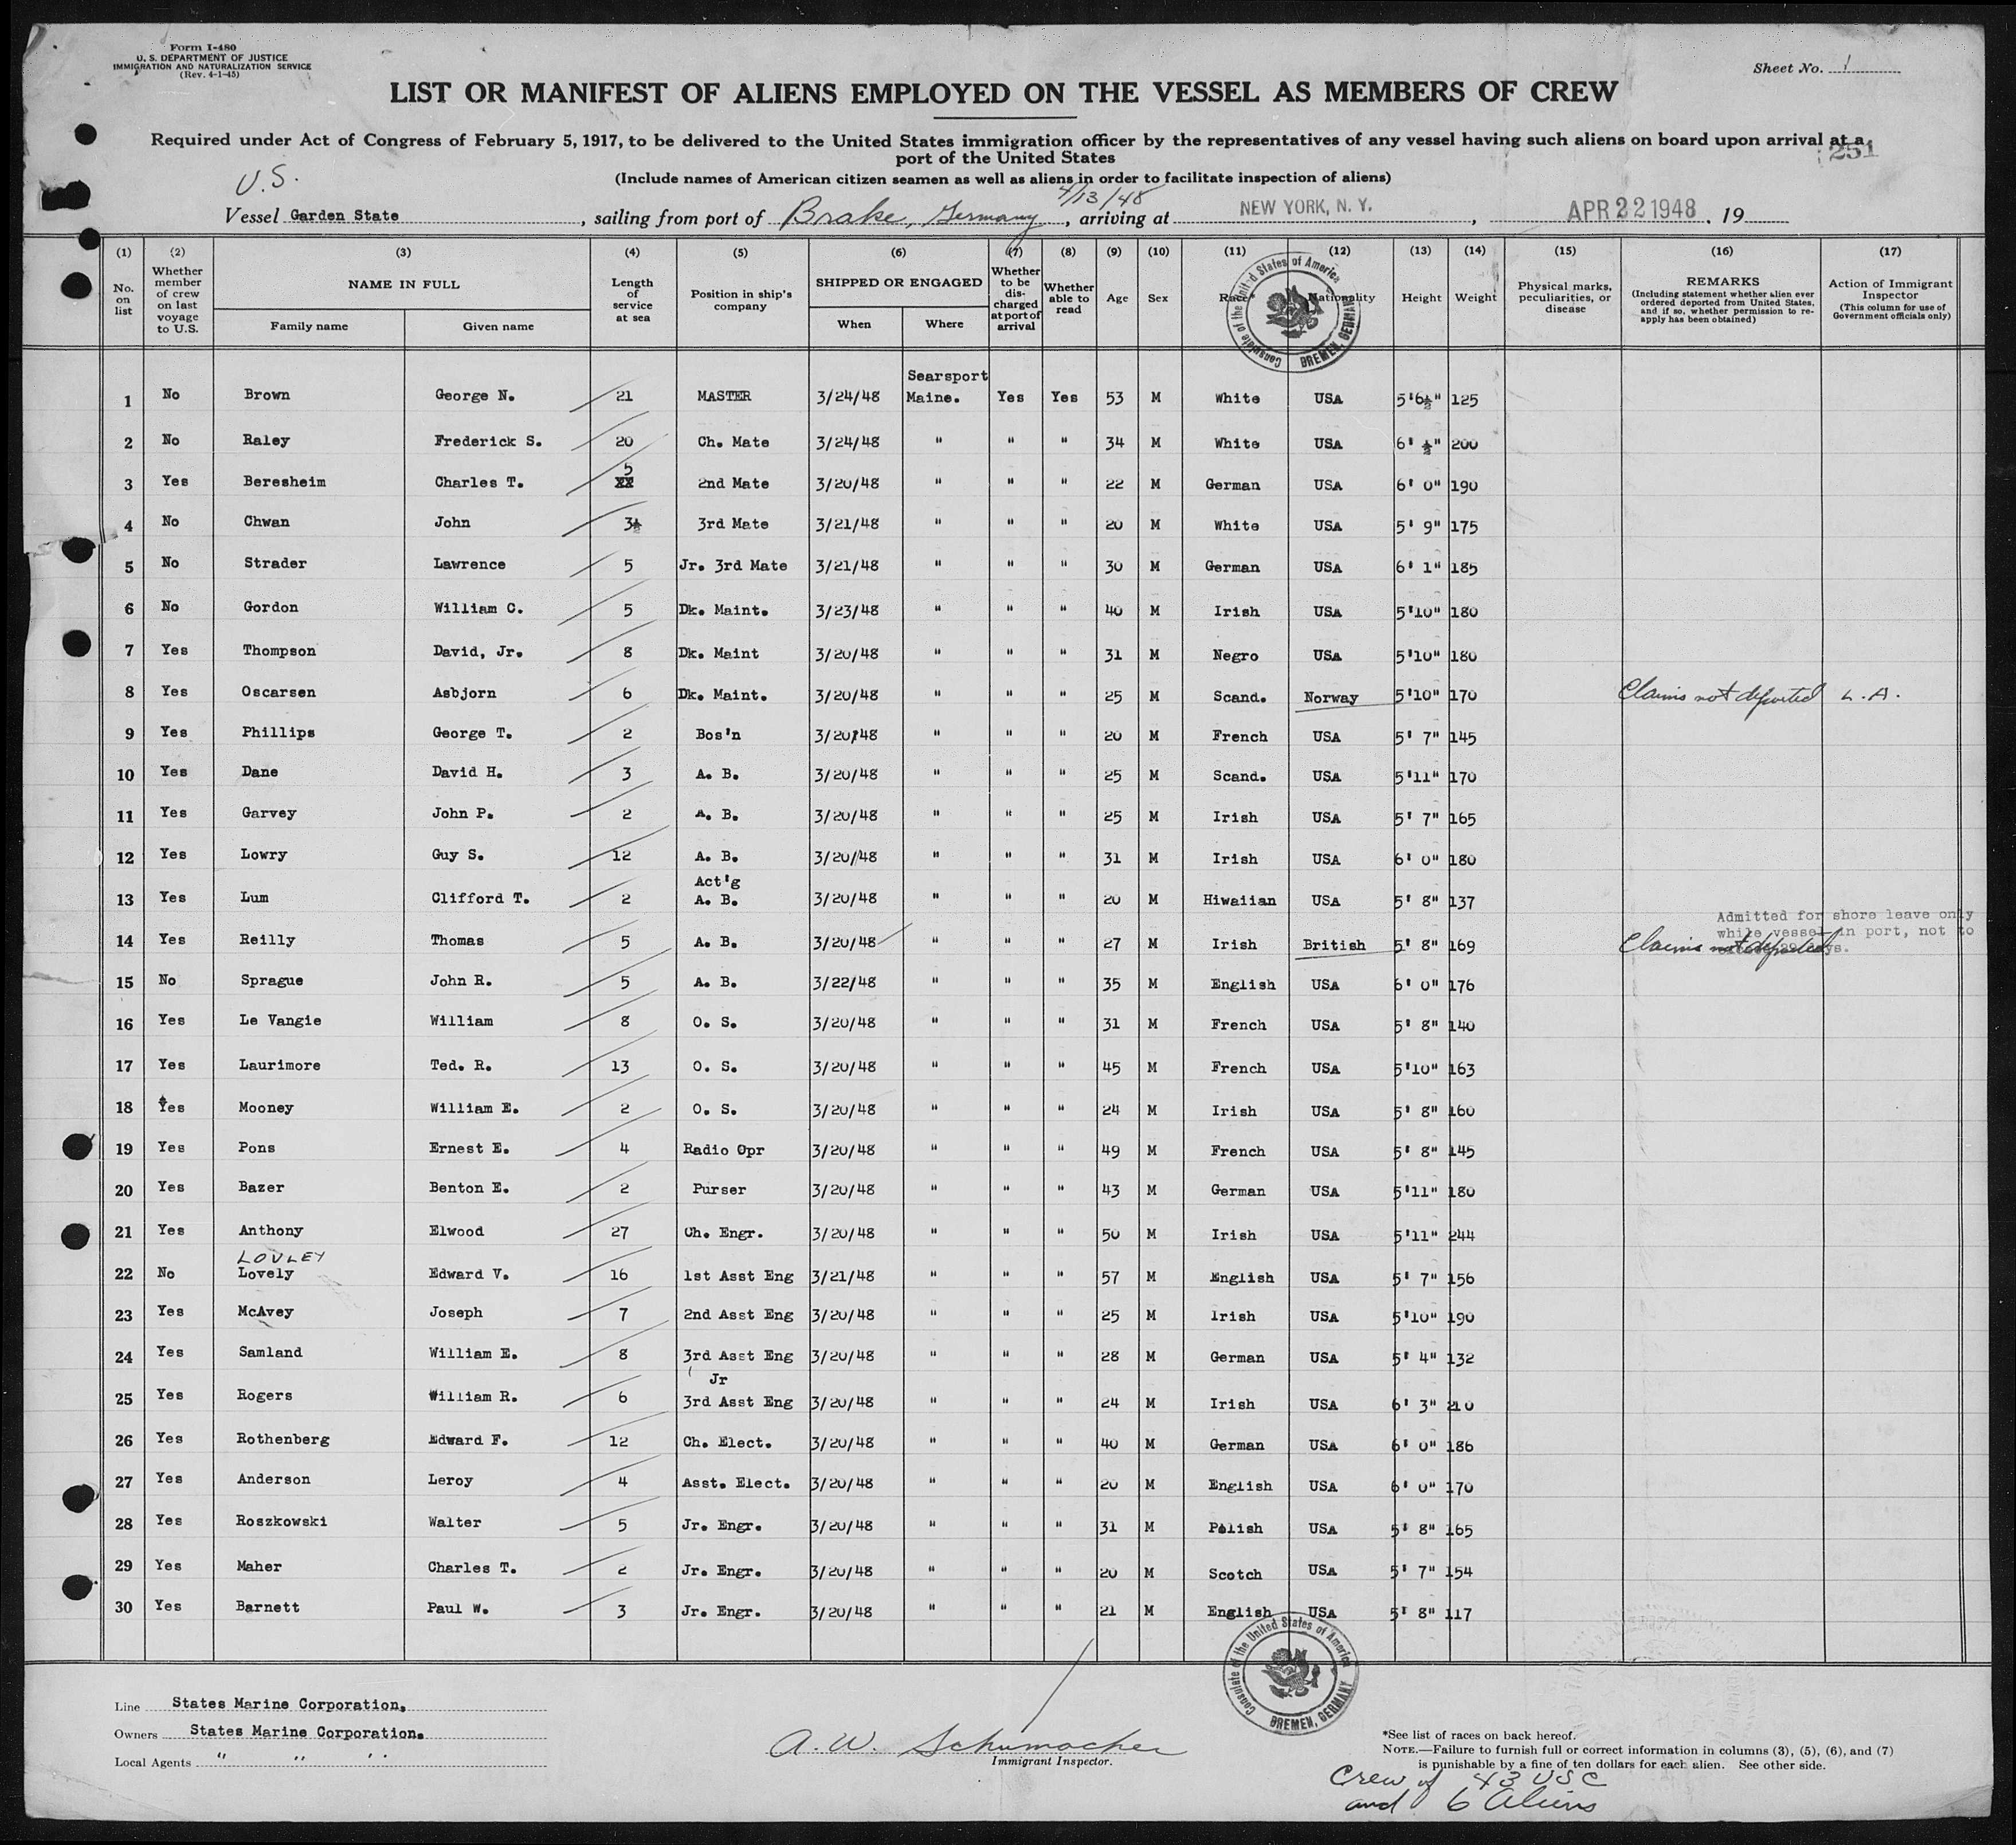 Form I-480
U. S. DEPARTMENT OF JUSTICE
IMMIGRATION AND NATURALIZATION SERVICE
(Rev. 4-1-45)
Sheet No. 1
LIST OR MANIFEST OF ALIENS EMPLOYED ON THE VESSEL AS MEMBERS OF CREW
Required under Act of Congress of February 5, 1917, to be delivered to the United States immigration officer by the representatives of any vessel having such aliens on board upon arrival at a
port of the United States
251
(Include names of American citizen seamen as well as aliens in order to facilitate inspection of aliens)
U.S.
4/13/48
Vessel Garden State, sailing from port of Brake, Germany, arriving at NEW YORK, N. Y., APR 22 1948, 19
(1) (2) (3) (4) (5) (6) (7) (8) (9) (10) (11) (12) (13) (14) (15) (16) (17)
No. on list
Whether member of crew on last voyage to U.S.
NAME IN FULL
Family name
Given name
Length of service at sea
Position in ship's company
SHIPPED OR ENGAGED
When
Where
Whether to be discharged at port of arrival
Whether able to read
Age
Sex
Race
Nationality
Height
Weight
Physical marks, peculiarities, or disease
REMARKS
(Including statement whether alien ever ordered deported from United States, and if so, whether permission to re-apply has been obtained)
Action of Immigrant Inspector
(This column for use of Government officials only)
Consulate of the United States of America BREMEN, GERMANY
Searsport
1 No Brown George N. 21 MASTER 3/24/48 Maine. Yes Yes 53 M White USA 5'6½" 125
2 No Raley Frederick S. 20 Ch. Mate 3/24/48 " " " 34 M White USA 6' ½" 200
5
3 Yes Beresheim Charles T. XX 2nd Mate 3/20/48 " " " 22 M German USA 6' 0" 190
4 No Chwan John 3½ 3rd Mate 3/21/48 " " " 20 M White USA 5' 9" 175
5 No Strader Lawrence 5 Jr. 3rd Mate 3/21/48 " " " 30 M German USA 6' 1" 185
6 No Gordon William C. 5 Dk. Maint. 3/23/48 " " " 40 M Irish USA 5'10" 180
7 Yes Thompson David, Jr. 8 Dk. Maint 3/20/48 " " " 31 M Negro USA 5'10" 180
8 Yes Oscarsen Asbjorn 6 Dk. Maint. 3/20/48 " " " 25 M Scand. Norway 5'10" 170 Claims not deported L.A.
9 Yes Phillips George T. 2 Bos'n 3/20/48 " " " 20 M French USA 5' 7" 145
10 Yes Dane David H. 3 A. B. 3/20/48 " " " 25 M Scand. USA 5'11" 170
11 Yes Garvey John P. 2 A. B. 3/20/48 " " " 25 M Irish USA 5' 7" 165
12 Yes Lowry Guy S. 12 A. B. 3/20/48 " " " 31 M Irish USA 6' 0" 180
Act'g
13 Yes Lum Clifford T. 2 A. B. 3/20/48 " " " 20 M Hiwaiian USA 5' 8" 137
Admitted for shore leave only
while vessel in port, not to
14 Yes Reilly Thomas 5 A. B. 3/20/48 " " " 27 M Irish British 5' 8" 169 Claims not deported
15 No Sprague John R. 5 A. B. 3/22/48 " " " 35 M English USA 6' 0" 176
16 Yes Le Vangie William 8 O. S. 3/20/48 " " " 31 M French USA 5' 8" 140
17 Yes Laurimore Ted. R. 13 O. S. 3/20/48 " " " 45 M French USA 5'10" 163
18 Yes Mooney William E. 2 O. S. 3/20/48 " " " 24 M Irish USA 5' 8" 160
19 Yes Pons Ernest E. 4 Radio Opr 3/20/48 " " " 49 M French USA 5' 8" 145
20 Yes Bazer Benton E. 2 Purser 3/20/48 " " " 43 M German USA 5'11" 180
21 Yes Anthony Elwood 27 Ch. Engr. 3/20/48 " " " 50 M Irish USA 5'11" 244
LOVLEY
22 No Lovely Edward V. 16 1st Asst Eng 3/21/48 " " " 57 M English USA 5' 7" 156
23 Yes McAvey Joseph 7 2nd Asst Eng 3/20/48 " " " 25 M Irish USA 5'10" 190
24 Yes Samland William E. 8 3rd Asst Eng 3/20/48 " " " 28 M German USA 5' 4" 132
Jr
25 Yes Rogers William R. 6 3rd Asst Eng 3/20/48 " " " 24 M Irish USA 6' 3" 210
26 Yes Rothenberg Edward F. 12 Ch. Elect. 3/20/48 " " " 40 M German USA 6' 0" 186
27 Yes Anderson Leroy 4 Asst. Elect. 3/20/48 " " " 20 M English USA 6' 0" 170
28 Yes Roszkowski Walter 5 Jr. Engr. 3/20/48 " " " 31 M Polish USA 5' 8" 165
29 Yes Maher Charles T. 2 Jr. Engr. 3/20/48 " " " 20 M Scotch USA 5' 7" 154
30 Yes Barnett Paul W. 3 Jr. Engr. 3/20/48 " " " 21 M English USA 5' 8" 117
Consulate of the United States of America BREMEN, GERMANY
Line States Marine Corporation.
Owners States Marine Corporation.
Local Agents " " "
A. W. Schumacher
Immigrant Inspector.
*See list of races on back hereof.
NOTE.—Failure to furnish full or correct information in columns (3), (5), (6), and (7)
is punishable by a fine of ten dollars for each alien. See other side.
Crew of 43 USC
and 6 Aliens